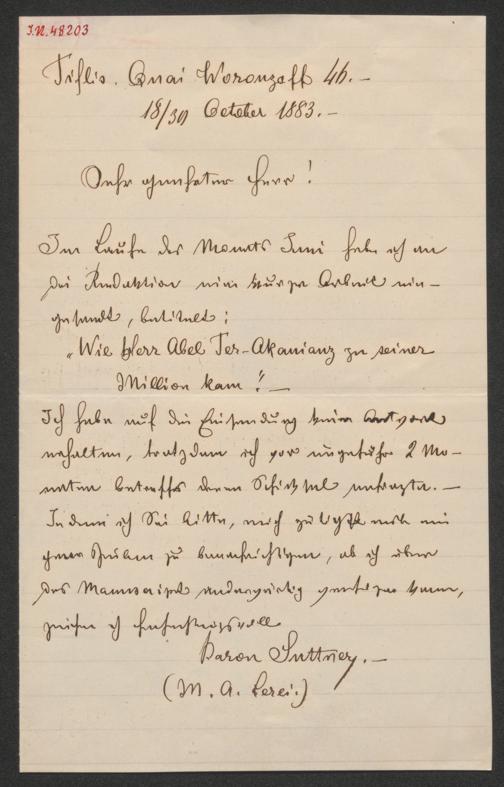 I.N. 48203
Tiflis. Quai Woronzoff 46.–
18/30 October 1883.–
Sehr geehrter Herr!
Im Laufe des Monats Juni habe ich an
die Redaktion eine kurze Arbeit ein-
gesandt, betitelt:
„Wie Herr Abel Ter-Akanianz zu seiner
Million kam".–
Ich habe auf die Einsendung keine Antwort
erhalten, trotzdem ich vor ungefähr 2 Mo-
naten betreffs deren Schicksal anfragte.–
Indem ich Sie bitte, mich mit
zu benachrichtigen, ob ich über
das Manuscript anderwärtig verfügen kann,
zeichne ich hochachtungsvoll
Baron Suttner.–
(M. A. Lerei.)